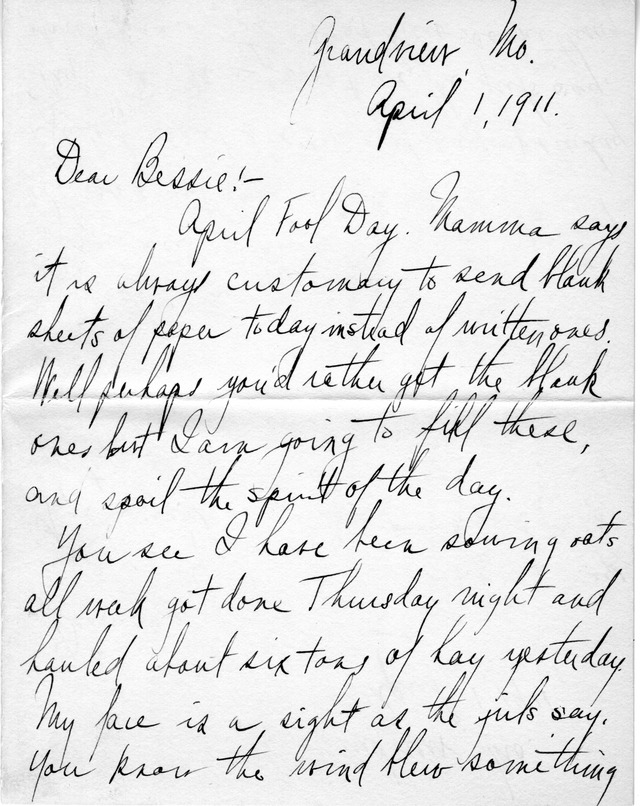 Grandview, Mo.
April 1, 1911.
Dear Bessie:-
April Fool Day. Mamma says
it is always customary to send blank
sheets of paper today instead of written ones.
Well perhaps you'd rather get the blank
ones but I am going to fill these,
and spoil the spirit of the day.
You see I have been sowing oats
all week got done Thursday night and
hauled about six tons of hay yesterday.
My face is a sight as the girls say.
You know the wind blew something